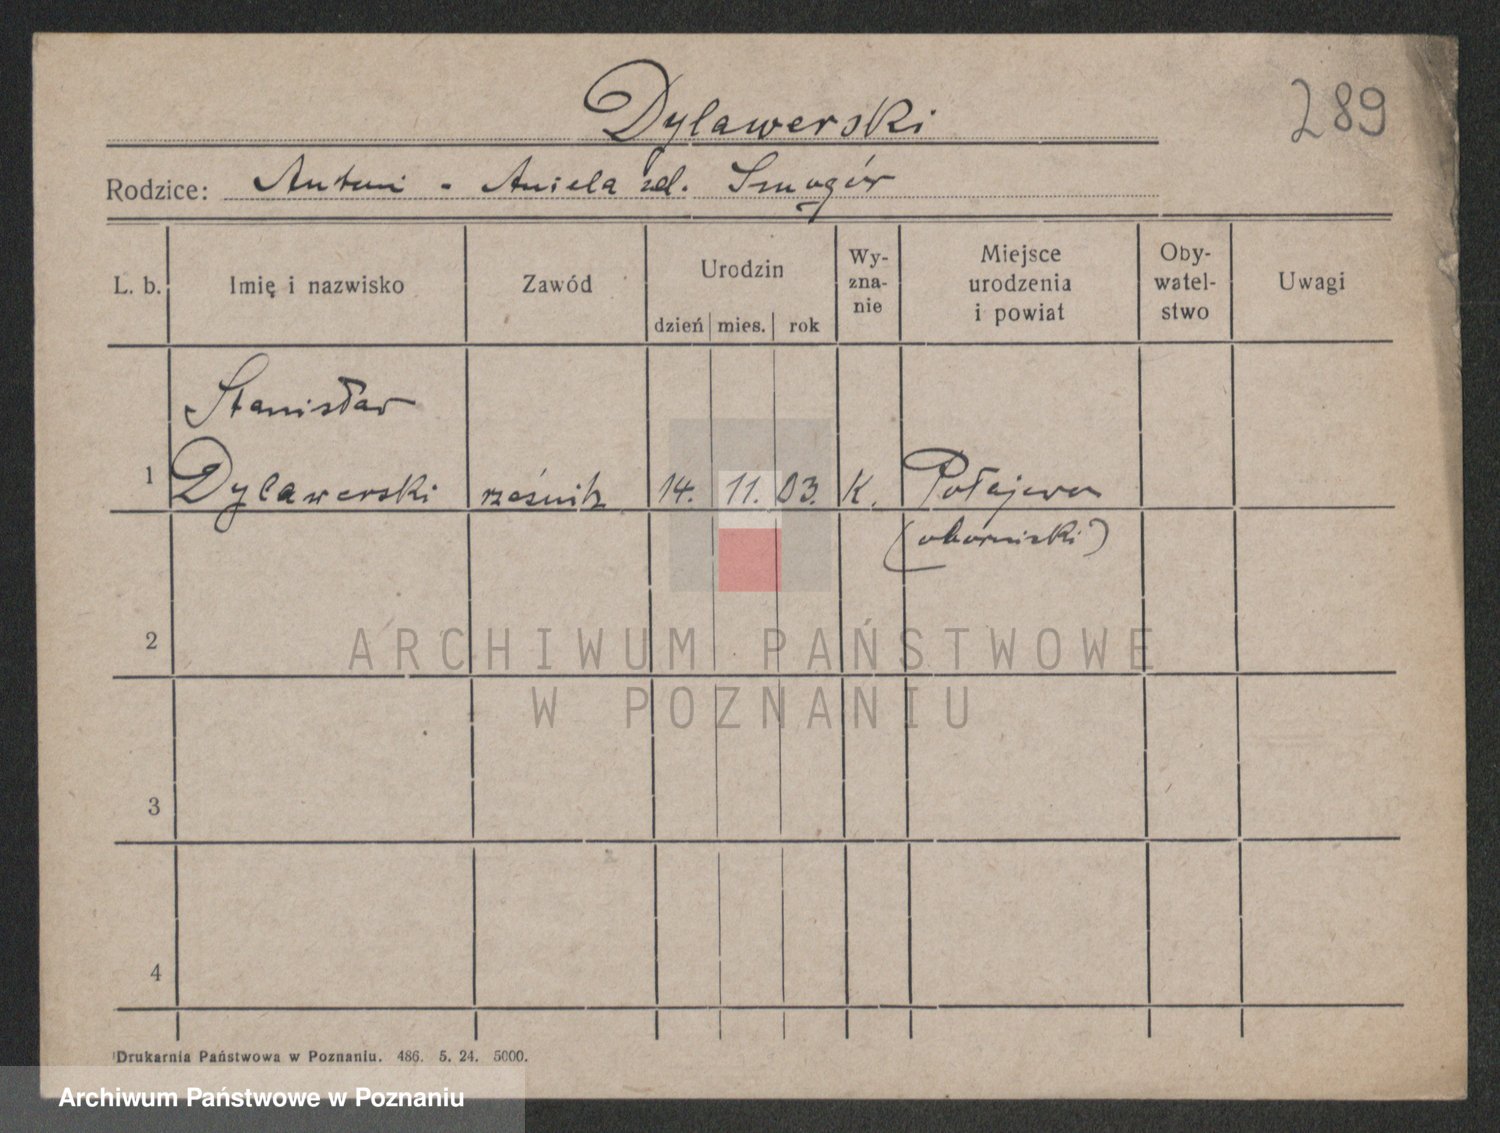 Dylawerski
289
Rodzice: Antoni - Aniela zd. Smogór
L. b. Imię i nazwisko Zawód Urodzin dzień mies. rok Wy-zna-nie Miejsce urodzenia i powiat Oby-watel-stwo Uwagi
Stanisław
1 Dylawerski rześnik 14. 11. 03. K. Połajewo
(obornicki)
2
ARCHIWUM PAŃSTWOWE
W POZNANIU
3
4
Drukarnia Państwowa w Poznaniu. 486. 5. 24. 5000.
Archiwum Państwowe w Poznaniu